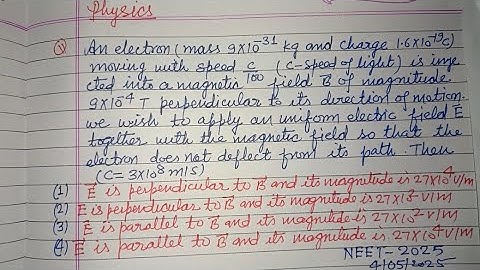 Physics
Q An electron (mass 9X10⁻³¹ kg and charge 1.6X10⁻¹⁹C)
moving with speed c/100 (C-speed of light) is inje
cted into a magnetic field B⃗ of magnitude
9X10⁻⁴ T perpendicular to its direction of motion.
we wish to apply an uniform electric field E⃗
together with the magnetic field so that the
electron does not deflect from its path. Then
(C = 3X10⁸ m/s)
(1) E⃗ is perpendicular to B⃗ and its magnitude is 27X10⁴ V/m
(2) E⃗ is perpendicular to B⃗ and its magnitude is 27X10² V/m
(3) E⃗ is parallel to B⃗ and its magnitude is 27X10² V/m
(4) E⃗ is parallel to B⃗ and its magnitude is 27X10⁴ V/m
NEET-2025
4/05/2025